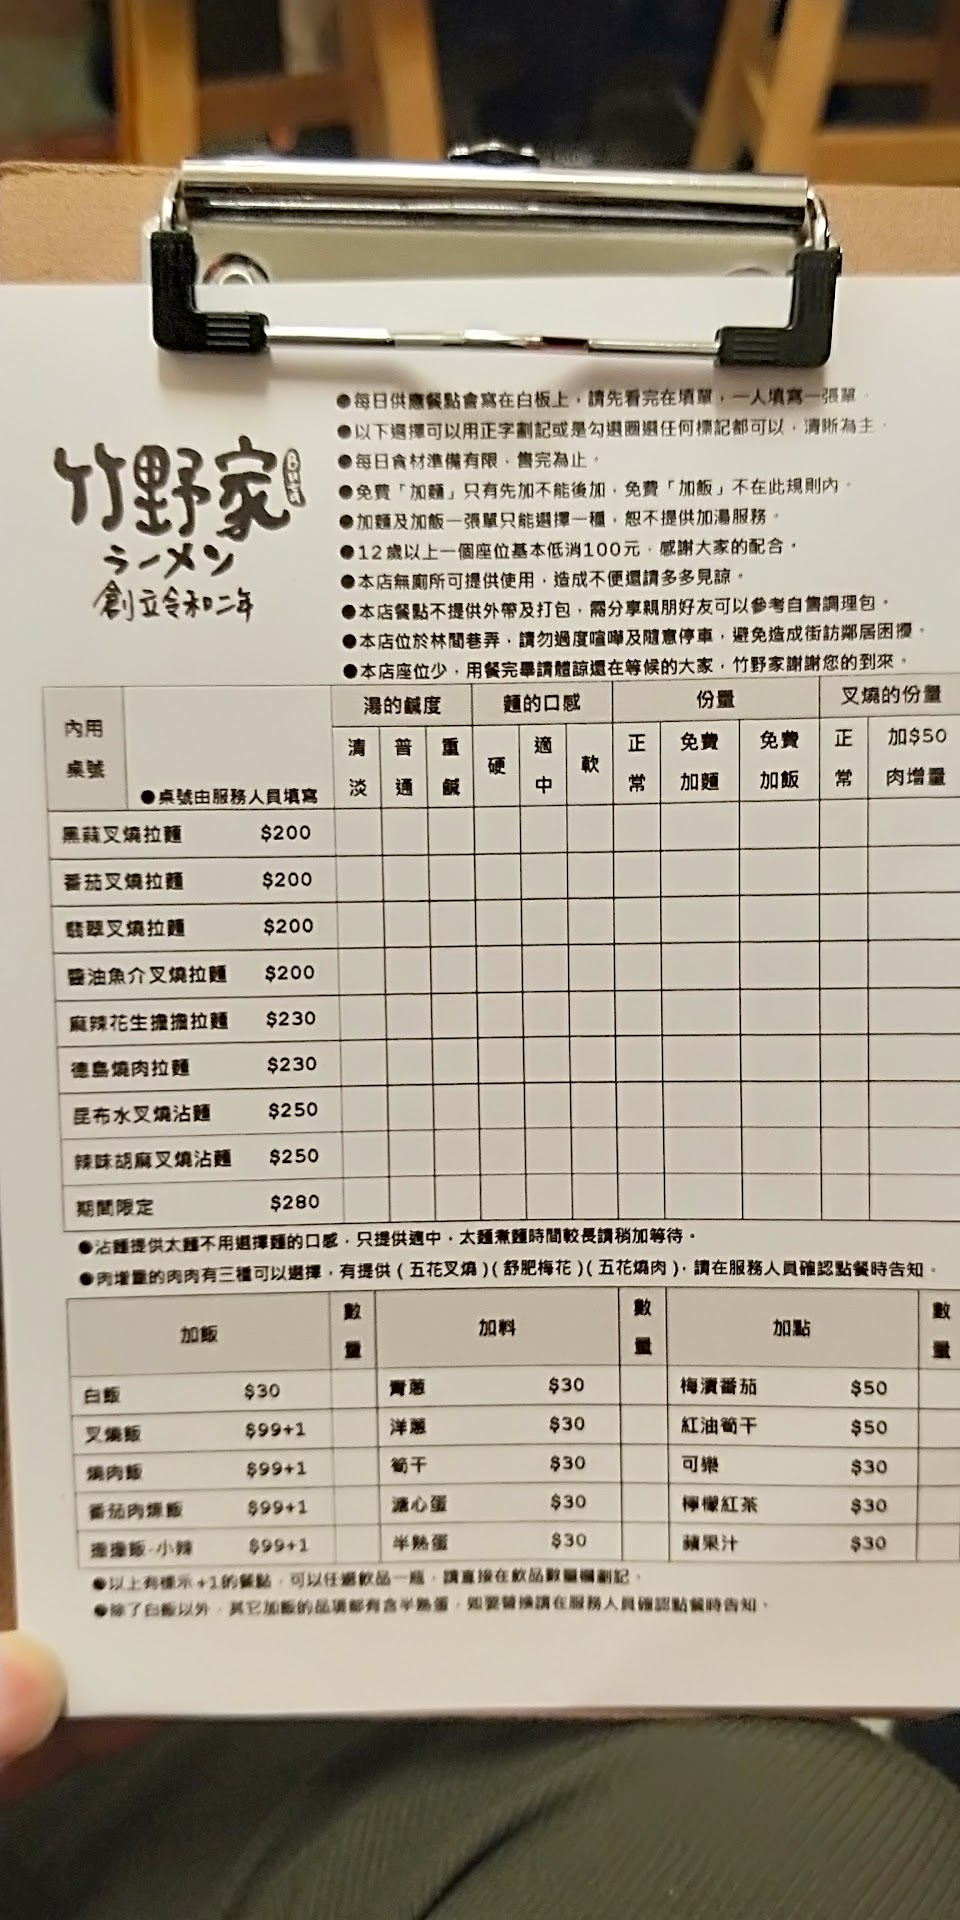 ●每日供應餐點會寫在白板上，請先看完在填單，一人填寫一張單。
●以下選擇可以用正字劃記或是勾選圈選任何標記都可以，清晰為主。
●每日食材準備有限，售完為止。
●免費「加麵」只有先加不能後加，免費「加飯」不在此規則內。
●加麵及加飯一張單只能選擇一種，恕不提供加湯服務。
●12歲以上一個座位基本低消100元，感謝大家的配合。
●本店無廁所可提供使用，造成不便還請多多見諒。
●本店餐點不提供外帶及打包，需分享親朋好友可以參考自售調理包。
●本店位於林間巷弄，請勿過度喧嘩及隨意停車，避免造成街訪鄰居困擾。
●本店座位少，用餐完畢請體諒還在等候的大家，竹野家謝謝您的到來。
竹野家
ラーメン
創立令和二年
內用桌號 ●桌號由服務人員填寫 湯的鹹度 麵的口感 份量 叉燒的份量
清淡 普通 重鹹 硬 適中 軟 正常 免費加麵 免費加飯 正常 加$50肉增量
黑蒜叉燒拉麵 $200
番茄叉燒拉麵 $200
翡翠叉燒拉麵 $200
醬油魚介叉燒拉麵 $200
麻辣花生擔擔拉麵 $230
德島燒肉拉麵 $230
昆布水叉燒沾麵 $250
辣味胡麻叉燒沾麵 $250
期間限定 $280
●沾麵提供太麵不用選擇麵的口感，只提供適中，太麵煮麵時間較長請稍加等待。
●肉增量的肉肉有三種可以選擇，有提供(五花叉燒)(舒肥梅花)(五花燒肉)，請在服務人員確認點餐時告知。
加飯 數量 加料 數量 加點 數量
白飯 $30 青蔥 $30 梅漬番茄 $50
叉燒飯 $99+1 洋蔥 $30 紅油筍干 $50
燒肉飯 $99+1 筍干 $30 可樂 $30
番茄肉燥飯 $99+1 溏心蛋 $30 檸檬紅茶 $30
擔擔飯-小辣 $99+1 半熟蛋 $30 蘋果汁 $30
●以上有標示+1的餐點，可以任選飲品一瓶，請直接在飲品數量欄劃記。
●除了白飯以外，其它加飯的品項都有含半熟蛋，如要替換請在服務人員確認點餐時告知。